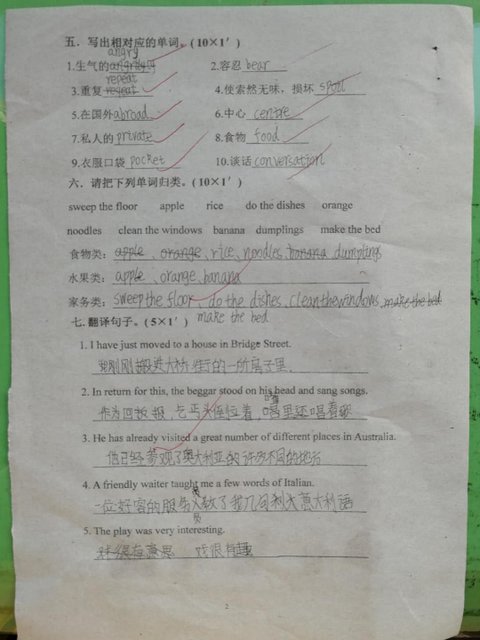 五．写出相对应的单词。(10×1′)
angry
1.生气的 2.容忍 bear
repeat
3.重复 repeat 4.使索然无味，损坏 spoil
5.在国外 abroad 6.中心 centre
7.私人的 private 8.食物 food
9.衣服口袋 pocket 10.谈话 conversation
六．请把下列单词归类。(10×1′)
sweep the floor apple rice do the dishes orange
noodles clean the windows banana dumplings make the bed
食物类: apple、orange、rice、noodles banana dumplings
水果类: apple、orange、banana
家务类: sweep the floor、do the dishes、clean the windows、make the bed
make the bed
七. 翻译句子。(5×1′)
1. I have just moved to a house in Bridge Street.
我刚刚搬进大桥街的一所房子里.
2. In return for this, the beggar stood on his head and sang songs.
作为回报，乞丐头倒位着，嘴里还唱着歌
3. He has already visited a great number of different places in Australia.
他已经参观了澳大利亚的许多不同的地方
4. A friendly waiter taught me a few words of Italian.
一位好客的服务员教了我几句意大利语
5. The play was very interesting.
戏很有意思 戏很有趣
2